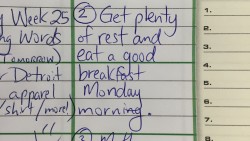 Week 25
Words
Tomorrow)
Detroit
apparel
shirt/more!)
② Get plenty
of rest and
eat a good
breakfast
Monday
morning.
③
1.
2.
3.
4.
5.
6.
7.
8.